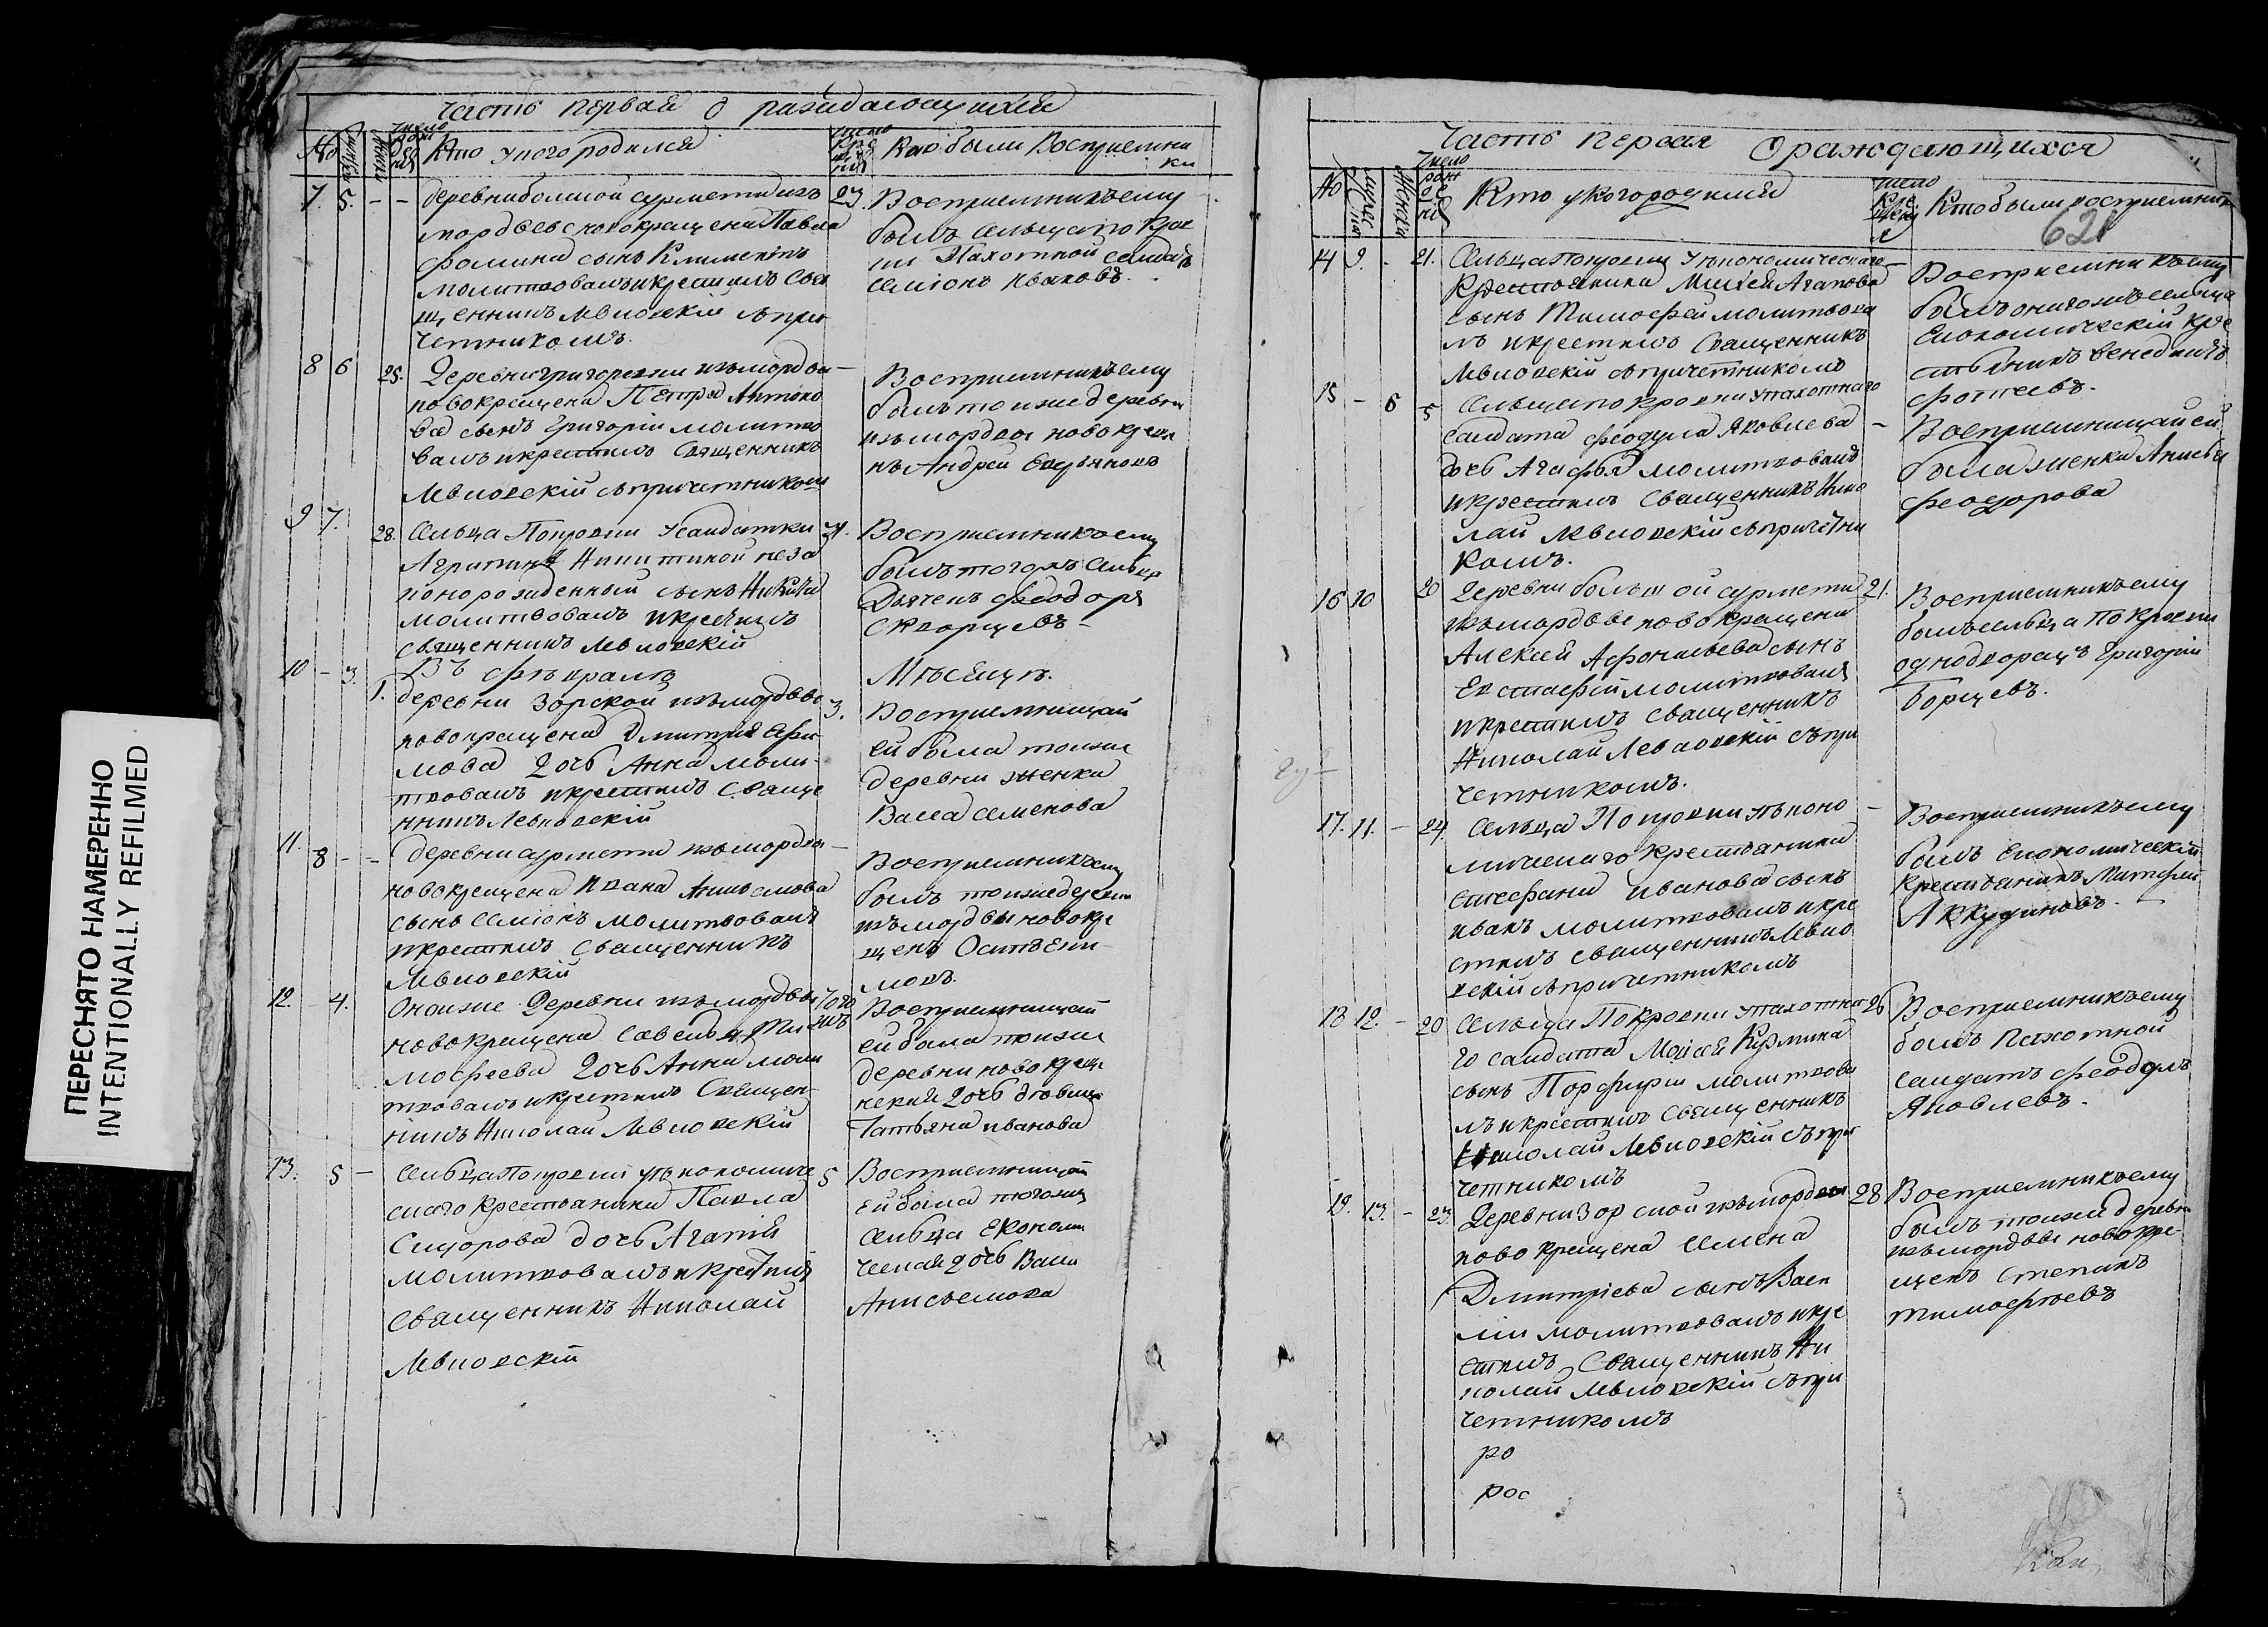 ПЕРЕСНЯТО НАМЕРЕННО
INTENTIONALLY REFILMED
часть первая о раждающихся
№ число рождения Кто у кого родился число крещения Кто были Восприемники
7. 5. - - деревни большой сурмети изъ 23.
мордвы новокрещена Павла
фомина сынъ Климентъ
молитвовалъ и крестилъ Свя
щенникъ Левковскій съ при
четникомъ.
Восприемникъ ему
былъ сельца покров
ки Пахотной солдатъ
семіонъ Ивановъ.
8 6 25. Деревни григоровки изъ мордвы -
новокрещена Петра Антоно
ва сынъ Григорій молитво
валъ и крестилъ Священникъ
Левковскій съ причетникомъ
Восприемникъ ему
былъ тоя же деревни
изъ мордвы новокреще
нъ Андрей
9 7. 28. Сельца Покровки у солдатки
Агрипины Никитиной неза
конорожденный сынъ Никита
молитвовалъ и крестилъ
священникъ Левковскій
Восприемникъ ему
былъ того жъ сельца
Дьячекъ Феодоръ
Скворцевъ
Въ февралѣ Мѣсяцѣ.
10 - 3. 1. деревни Зорской изъ мордвы 3.
новокрещена Дмитрія Ефи
мова дочь Анна моли-
твовалъ и крестилъ Священ
никъ Левковскій
Восприемницей
ей была тоя же
деревни женка
Васса Семенова
11. 8 - - деревни сурмети изъ мордвы -
новокрещена Ивана Анисимова
сынъ Семіонъ молитвовалъ
и крестилъ Священникъ
Левковскій
Восприемникъ ему
былъ тоя же деревни
изъ мордвы новокре
щенъ
мовъ.
12. - 4. Оноя же Деревни изъ мордвы того жъ
новокрещена Савелья Ти
мофеева дочь Анна моли
твовалъ и крестилъ Священ-
никъ Николай Левковскій
Восприемницей
ей была тоя же
деревни новокреще
нская дочь девица
Татьяна Иванова
13. 5 - Сельца Покровки у экономиче 5
скаго крестьянина Павла
Сидорова дочь Агапія
молитвовалъ и крестилъ
Священникъ Николай
Левковскій
Восприемницей
ей была того же
сельца Економи
ческая дочь
Анисимова
Часть Первая О раждающихся
№ число рожденія Кто у кого родился число крещеніе Кто были восприемники
621
14 9. - 21. Сельца Покровки у экономическаго -
Крестьянина Мосея Агапова
сынъ Тимофей молитвова
лъ и крестилъ Священникъ
Левковскій съ причетникомъ
Восприемникъ ему
былъ онаго жъ сельца
Економическій кре
стьянинъ Венедиктъ
Фотеевъ.
15 - 6 5 Сельца Покровки у пахотнаго -
салдата Феодула Яковлева
дочь Агафья молитвовалъ
и крестилъ Священникъ Нико
лай Левковскій съ причетни
комъ.
Восприемницей ей
была женка Анисья
Феодорова
16 10 20 Деревни большой сурмети 21.
изъ мордвы новокрещена
Алексея Афонасьева сынъ
Евстафій молитвовалъ
и крестилъ Священникъ
Николай Левковскій съ при
четникомъ.
Восприемникъ ему
былъ сельца Покровки
однодворецъ Григорій
Борцевъ.
17. 11. - 24. Сельца Покровки у эконо -
мическаго крестьянина
Стефана Иванова сынъ
Иванъ молитвовалъ и кре
стилъ священникъ Левко
вскій съ причетникомъ
Восприемникъ ему
былъ Економическій
крестьянинъ Митрофан
Аккудиновъ.
18 12. - 20 Сельца Покровки у пахотна 26
го салдата Моисея Кузмина
сынъ Порфирій молитвова
лъ и крестилъ Священникъ
Николай Левковскій съ при
четникомъ
Восприемникъ ему
былъ Пахотной
салдатъ Феодулъ
Яковлевъ.
19. 13. - 23. Деревни Зорской изъ мордвы 28
новокрещена Семена
Дмитріева сынъ Васи
лій молитвовалъ и кре
стилъ Священникъ Ни
колай Левковскій съ при
четникомъ
Восприемникъ ему
былъ тоя же деревни
изъ мордвы новокре-
щенъ Степанъ
Тимофеевъ
ро
рос